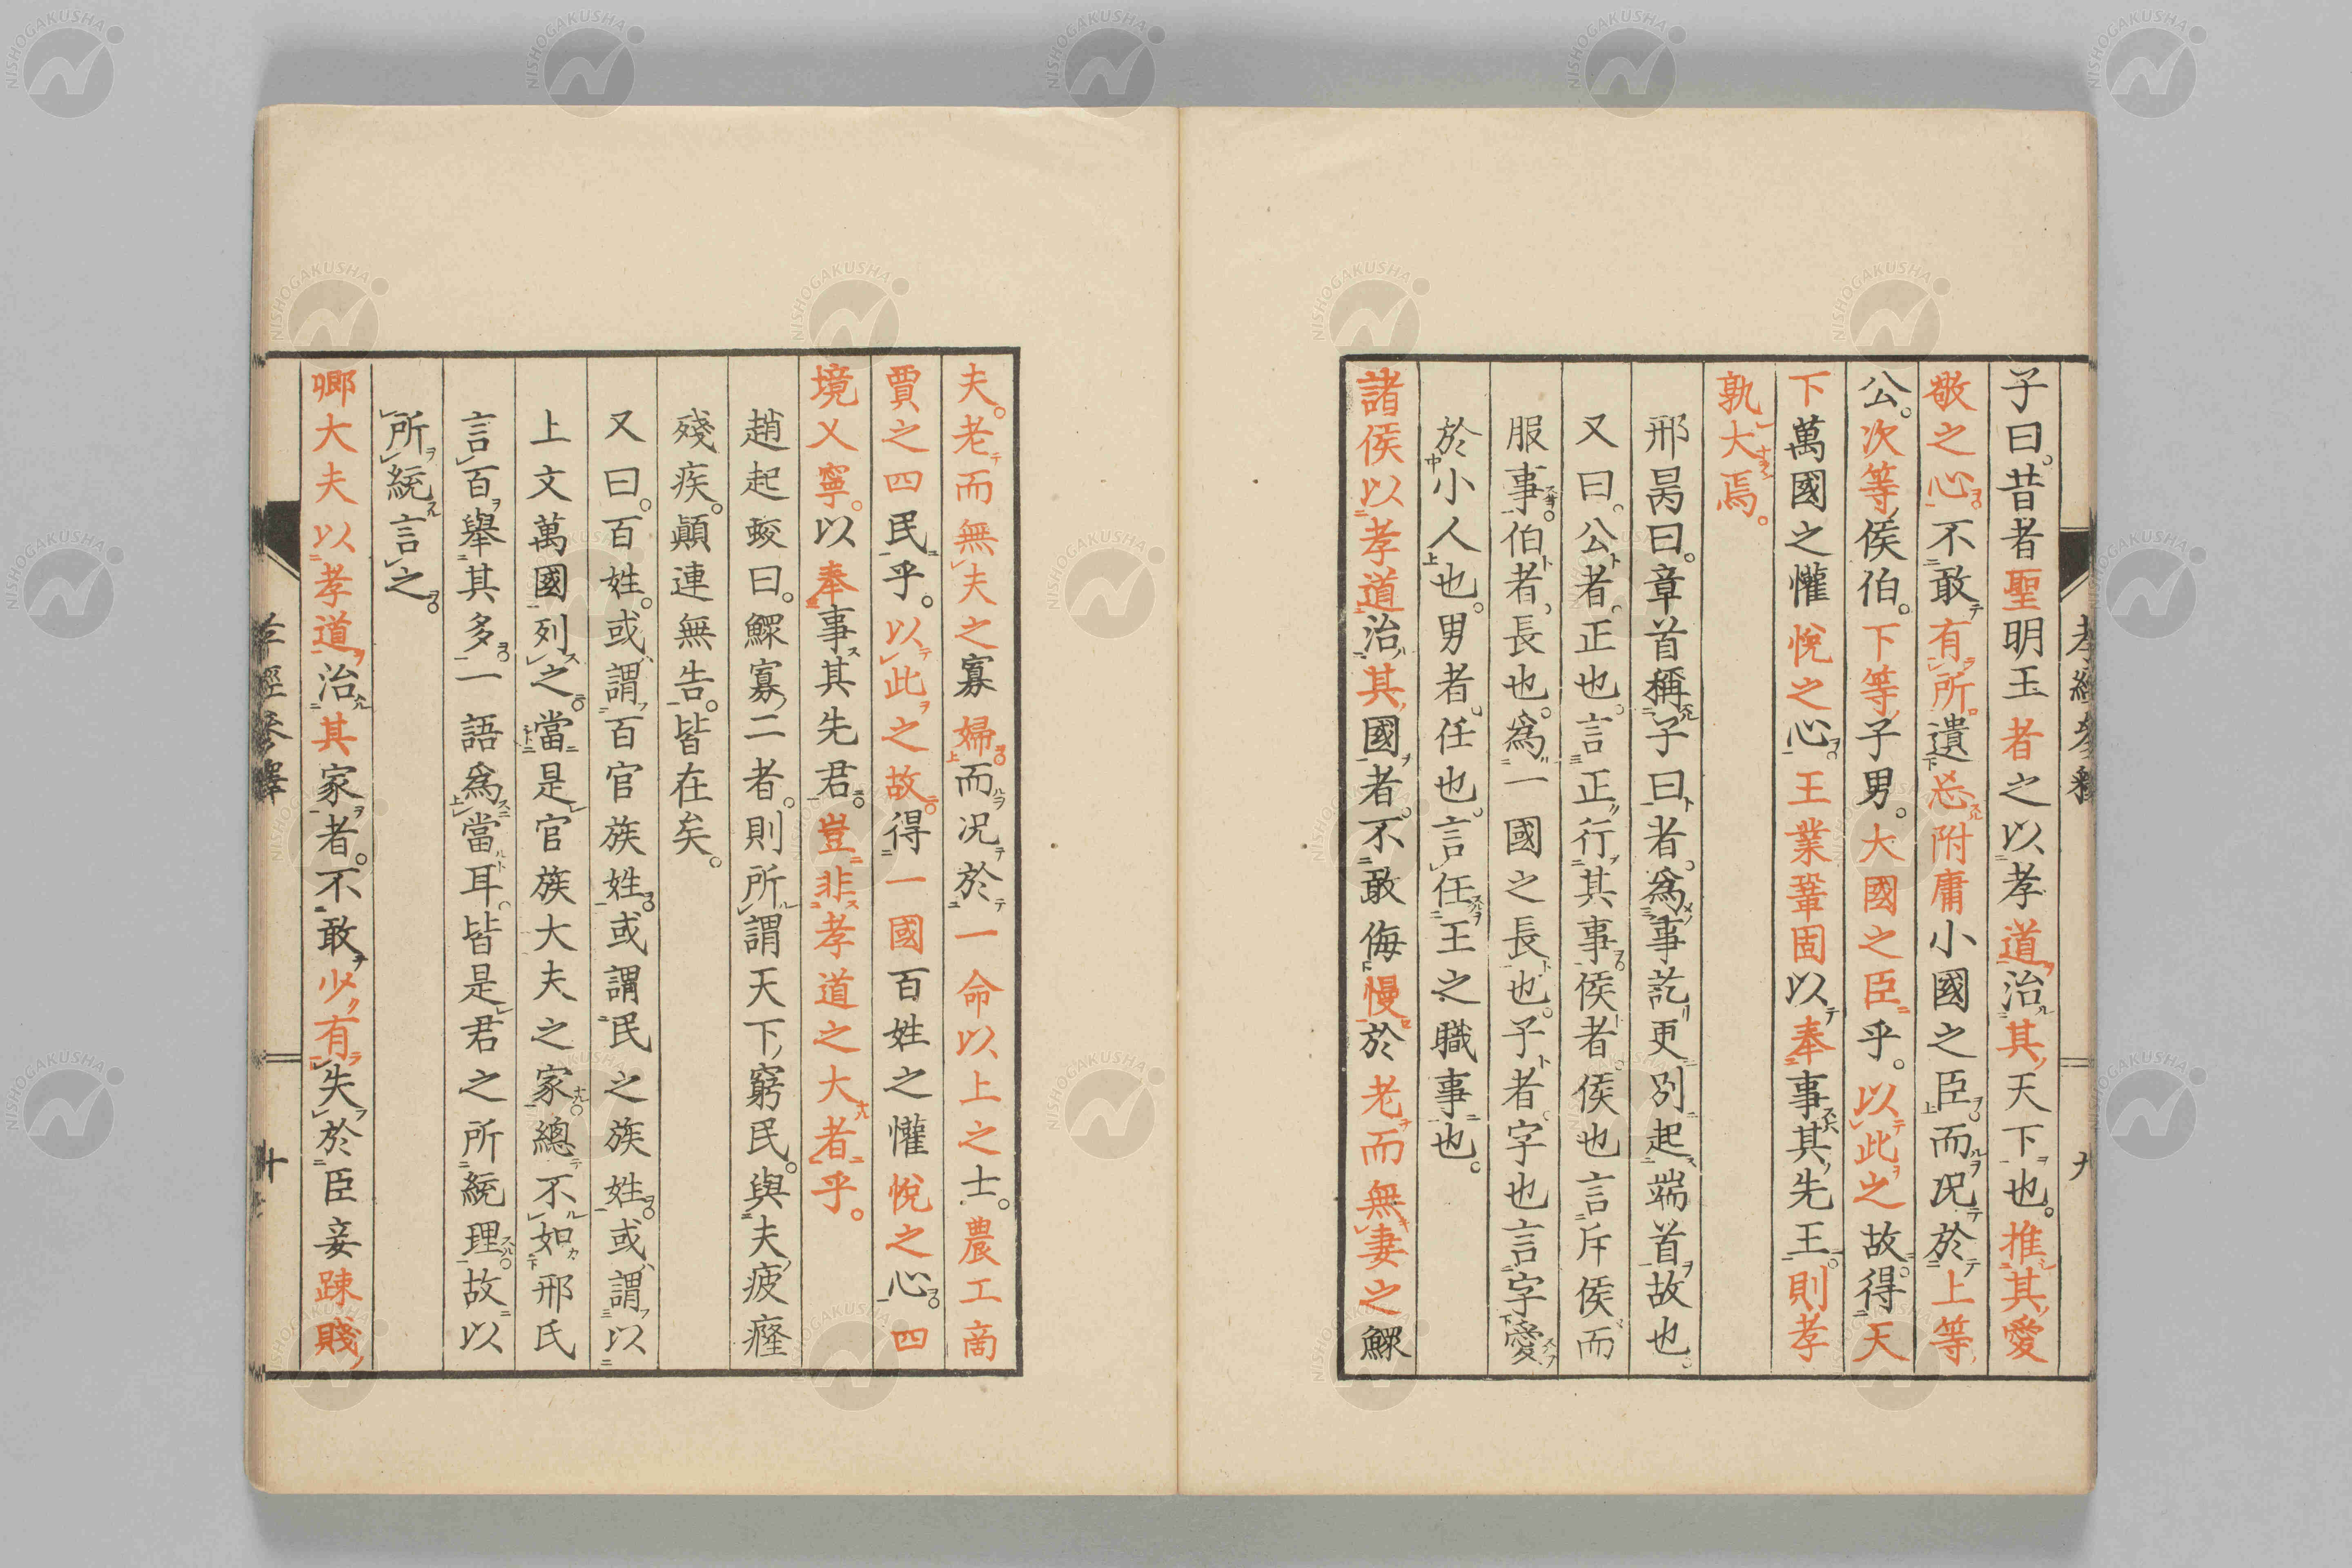 子曰。昔者聖明王者之以孝道治其天下也。推其愛
敬之心。不敢有所遺忘附庸小國之臣。而況於上等
公。次等侯伯。下等子男。大國之臣乎。以此之故。得天
下萬國之懽悅之心。王業鞏固以奉事其先王。則孝
孰大焉。
邢昺曰。章首稱子曰者。爲事訖更別起端首故也。
又曰。公者。正也。言正行其事。侯者。侯也言斥侯而
服事。伯者。長也。爲一國之長也。子者。字也言字愛
於小人也。男者。任也。言任王之職事也。
諸侯以孝道治其國者。不敢侮慢於老而無妻之鰥
夫。老而無夫之寡婦。而況於一命以上之士。農工商
賈之四民乎。以此之故。得一國百姓之懽悅之心。四
境乂寧。以奉事其先君。豈非孝道之大者乎。
趙起蛟曰。鰥寡二者。則所謂天下窮民。與夫疲癃
殘疾。顚連無告。皆在矣。
又曰。百姓。或謂百官族姓。或謂民之族姓。或謂以
上文萬國列之。當是官族大夫之家。總不如邢氏
言百舉其多。一語爲當耳。皆是君之所統理。故以
所統言之。
卿大夫以孝道治其家者。不敢少有失於臣妾踈賤
孝經參釋
九
十
NISHOGAKUSHA